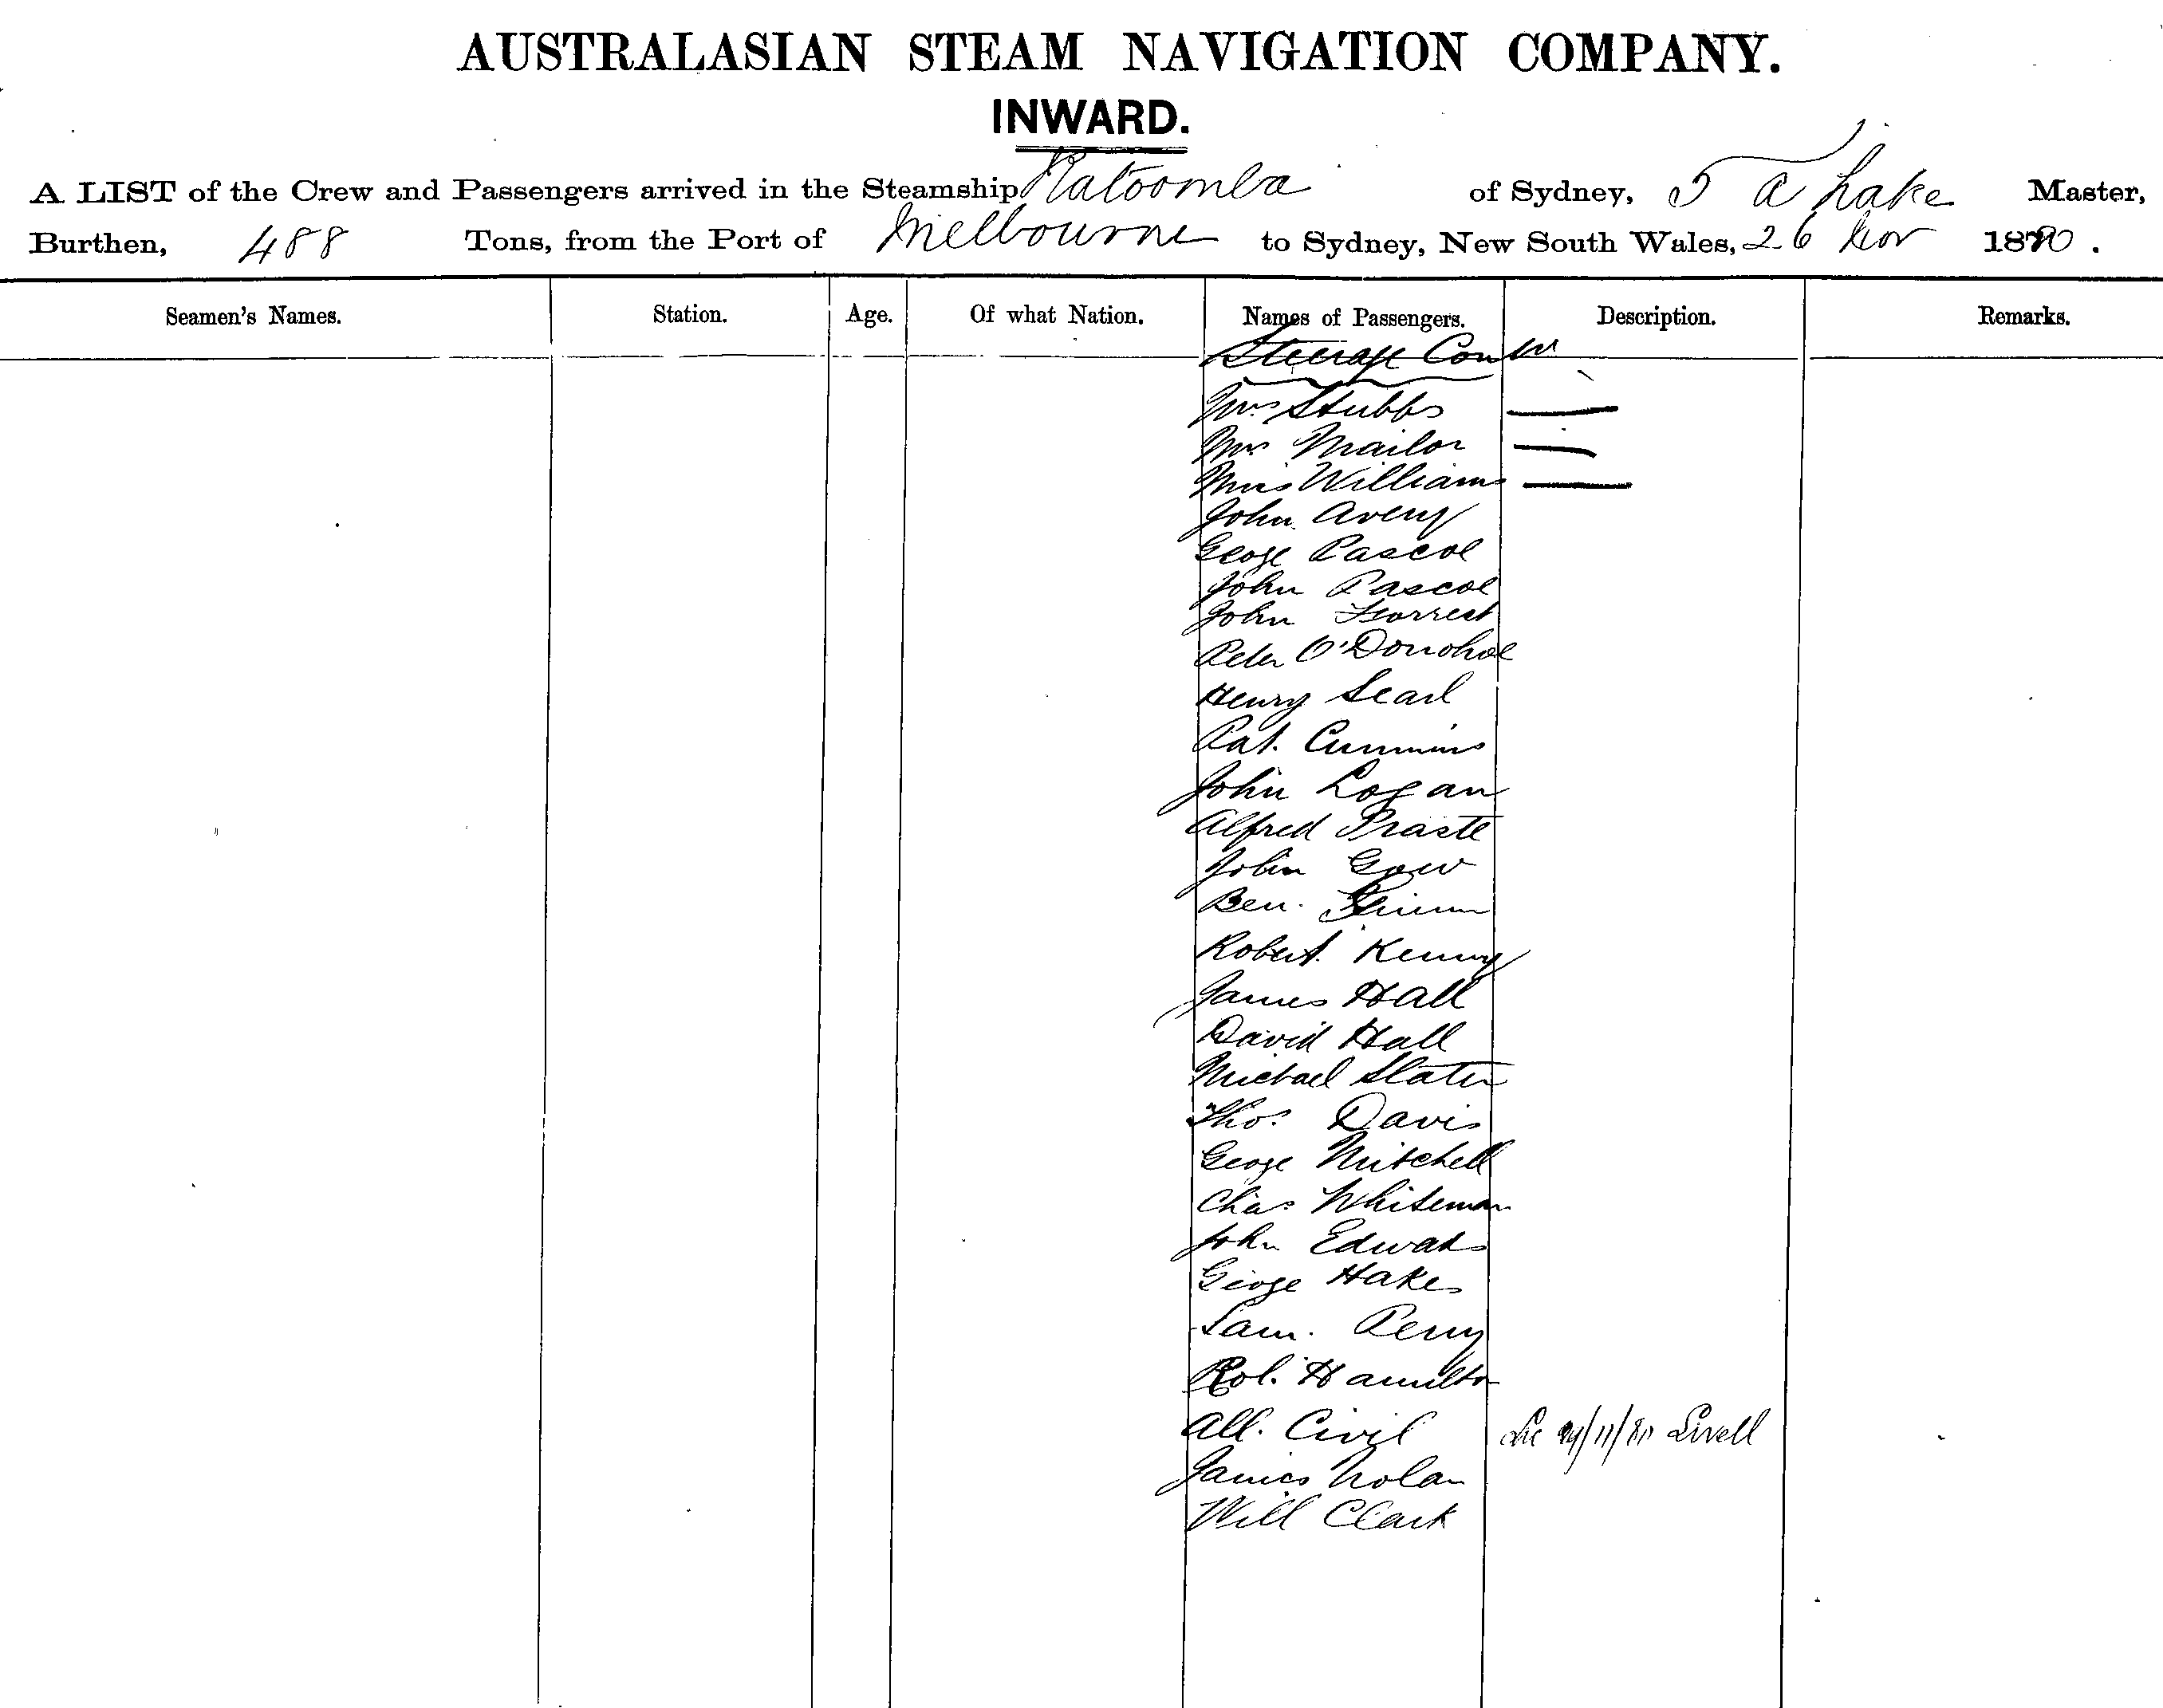 AUSTRALASIAN STEAM NAVIGATION COMPANY.
INWARD.
A LIST of the Crew and Passengers arrived in the Steamship Katoomba of Sydney, J A Lake Master,
Burthen, 488 Tons, from the Port of Melbourne to Sydney, New South Wales, 26 Nov 1880.
Seamen's Names. Station. Age. Of what Nation. Names of Passengers. Description. Remarks.
Steerage
Mrs Stubbs
Mrs Mailor
Miss Williams
John Avery
Geoge Pascoe
John Pascoe
John Forrest
Peter O'Donohoe
Henry Searl
Pat. Cummins
John Logan
Alfred
John Gow
Ben.
Robert Kenny
James Hall
David Hall
Michael Slater
Thos. Davis
Geoge Mitchell
Chas Whiteman
John Edwads
Geoge Hakes
Sam. Perry
Rob. Hamilton
Civil
James Nolan
Will Clark